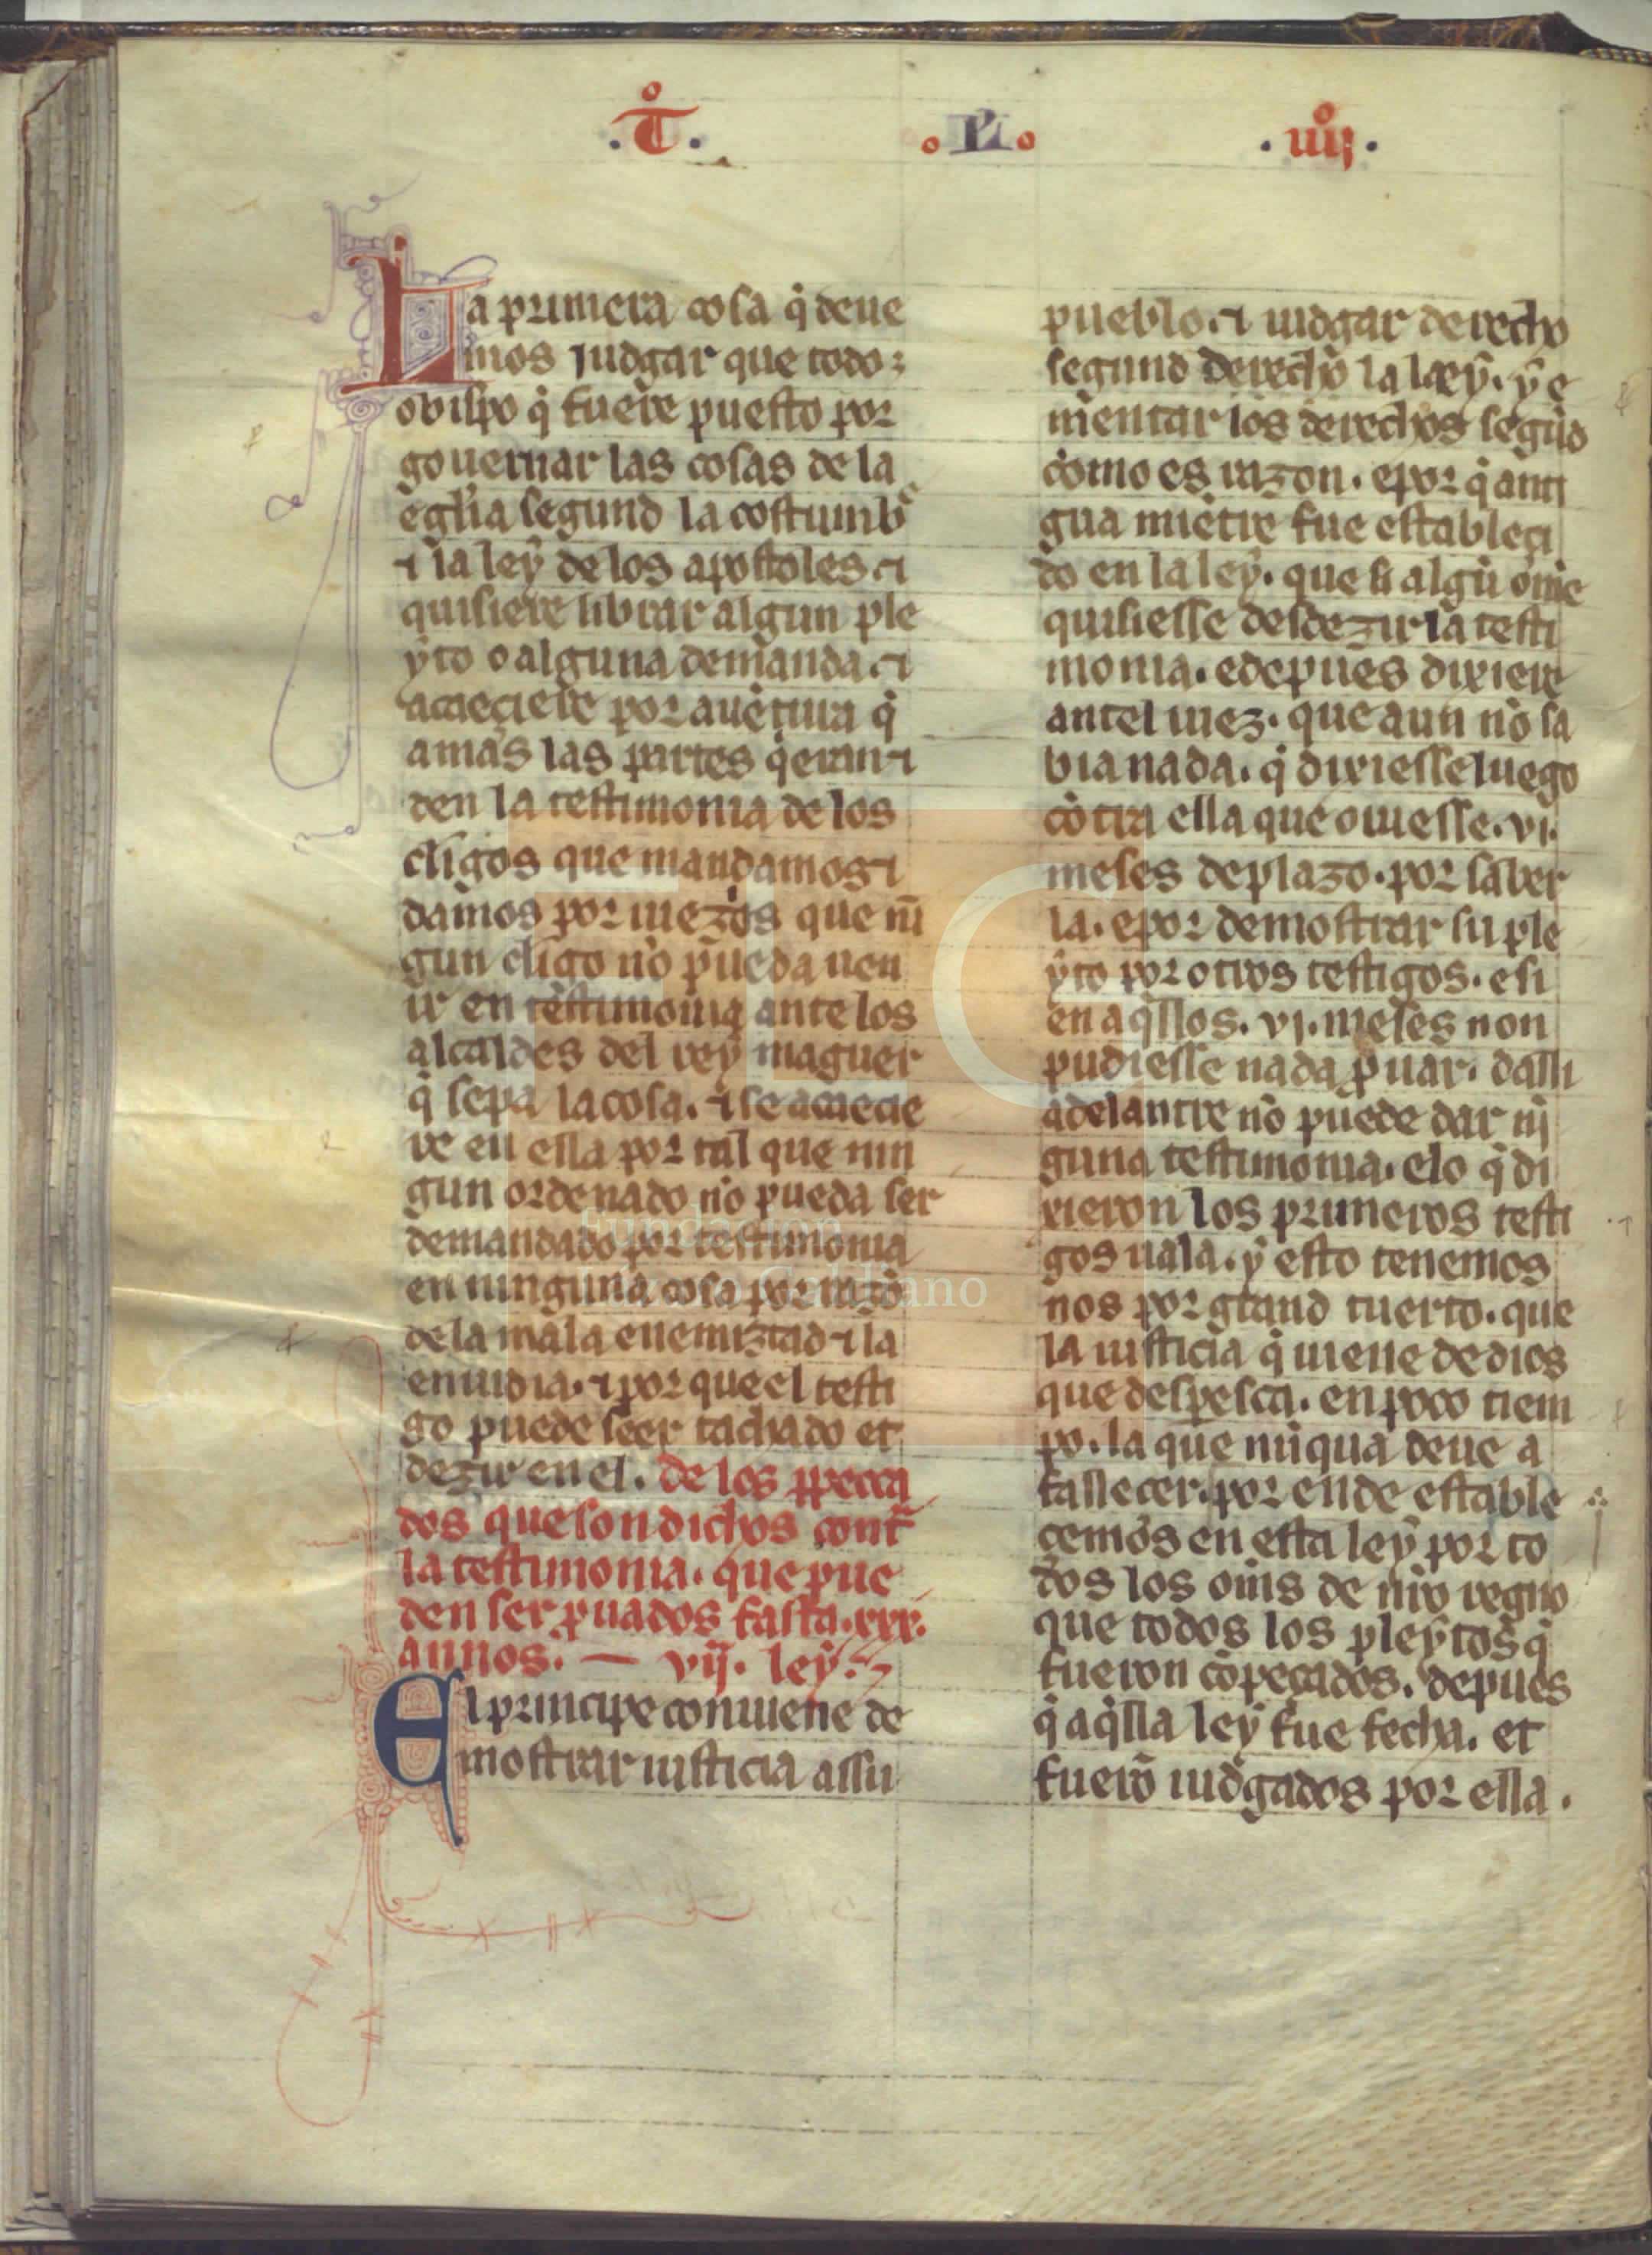 .T̊. .Pͥ. .iiijͦ.
La primera cosa q̇ deue
mos judgar que todo:
obispo q̇ fuere puesto por
gouernar las cosas de la
eglia segund la costumbͤ
⁊ la ley de los apostoles.⁊
quisiere librar algun ple
yto o alguna demanda.⁊
acaeçiere por auētura q̇
amas las partes q̇eran ⁊
den la testimonia de los
cligos que mandamos ⁊
damos por iuezes que nī
gun cligo nō pueda uen
ir en testimonia ante los
alcaldes del rey maguer
q̇ sepa la cosa.⁊ se acaecie
re en ella por tal que nin
gun ordenado nō pueda ser
demandado por testimonia
en ninguna cosa por razō
de la mala enemiztad ⁊ la
enuidia.⁊ por que el testi
go puede seer tachado et
dezir en el. de los ꝑecca
dos que son dichos contͣ
la testimonia. que pue
den ser ꝓuados fasta.xxx.
annos. — vij. ley.
El principe conuiene de
mostrar iusticia assu
pueblo.⁊ iudgar derecho
segund derecho la ley. y e
mentar los derechos segūd
como es razon. e por q̇ anti
gua miētre fue estableçi
do en la ley. que si algū om̄e
quisiesse desdezir la testi
monia. e depues dixiere
antel iuez. que aun nō sa
bia nada. q̇ dixiesse luego
cōtra ella que ouiesse.vi.
meses de plazo. por saber
la. e por demostrar su ple
yto por otros testigos. e si
en aq̇llos. vi. meses non
pudiesse nada ꝓuar. dalli
adelantre nō puede dar nī
guna testimonia. e lo q̇ di
xieron los primeros testi
gos uala. y esto tenemos
nos por grand tuerto. que
la iusticia q̇ uiene de dios
que desperesca. en poco tiem
po. la que nūqua deue a
fallecer. por ende estable
cemos en esta ley por to
dos los om̄s de nr̄o regno
que todos los pleytos q̇
fueron cōpeçados. depues
q̇ aq̇lla ley fue fecha. et
fuerō iudgados por ella.
Fundación
Lázaro Galdiano